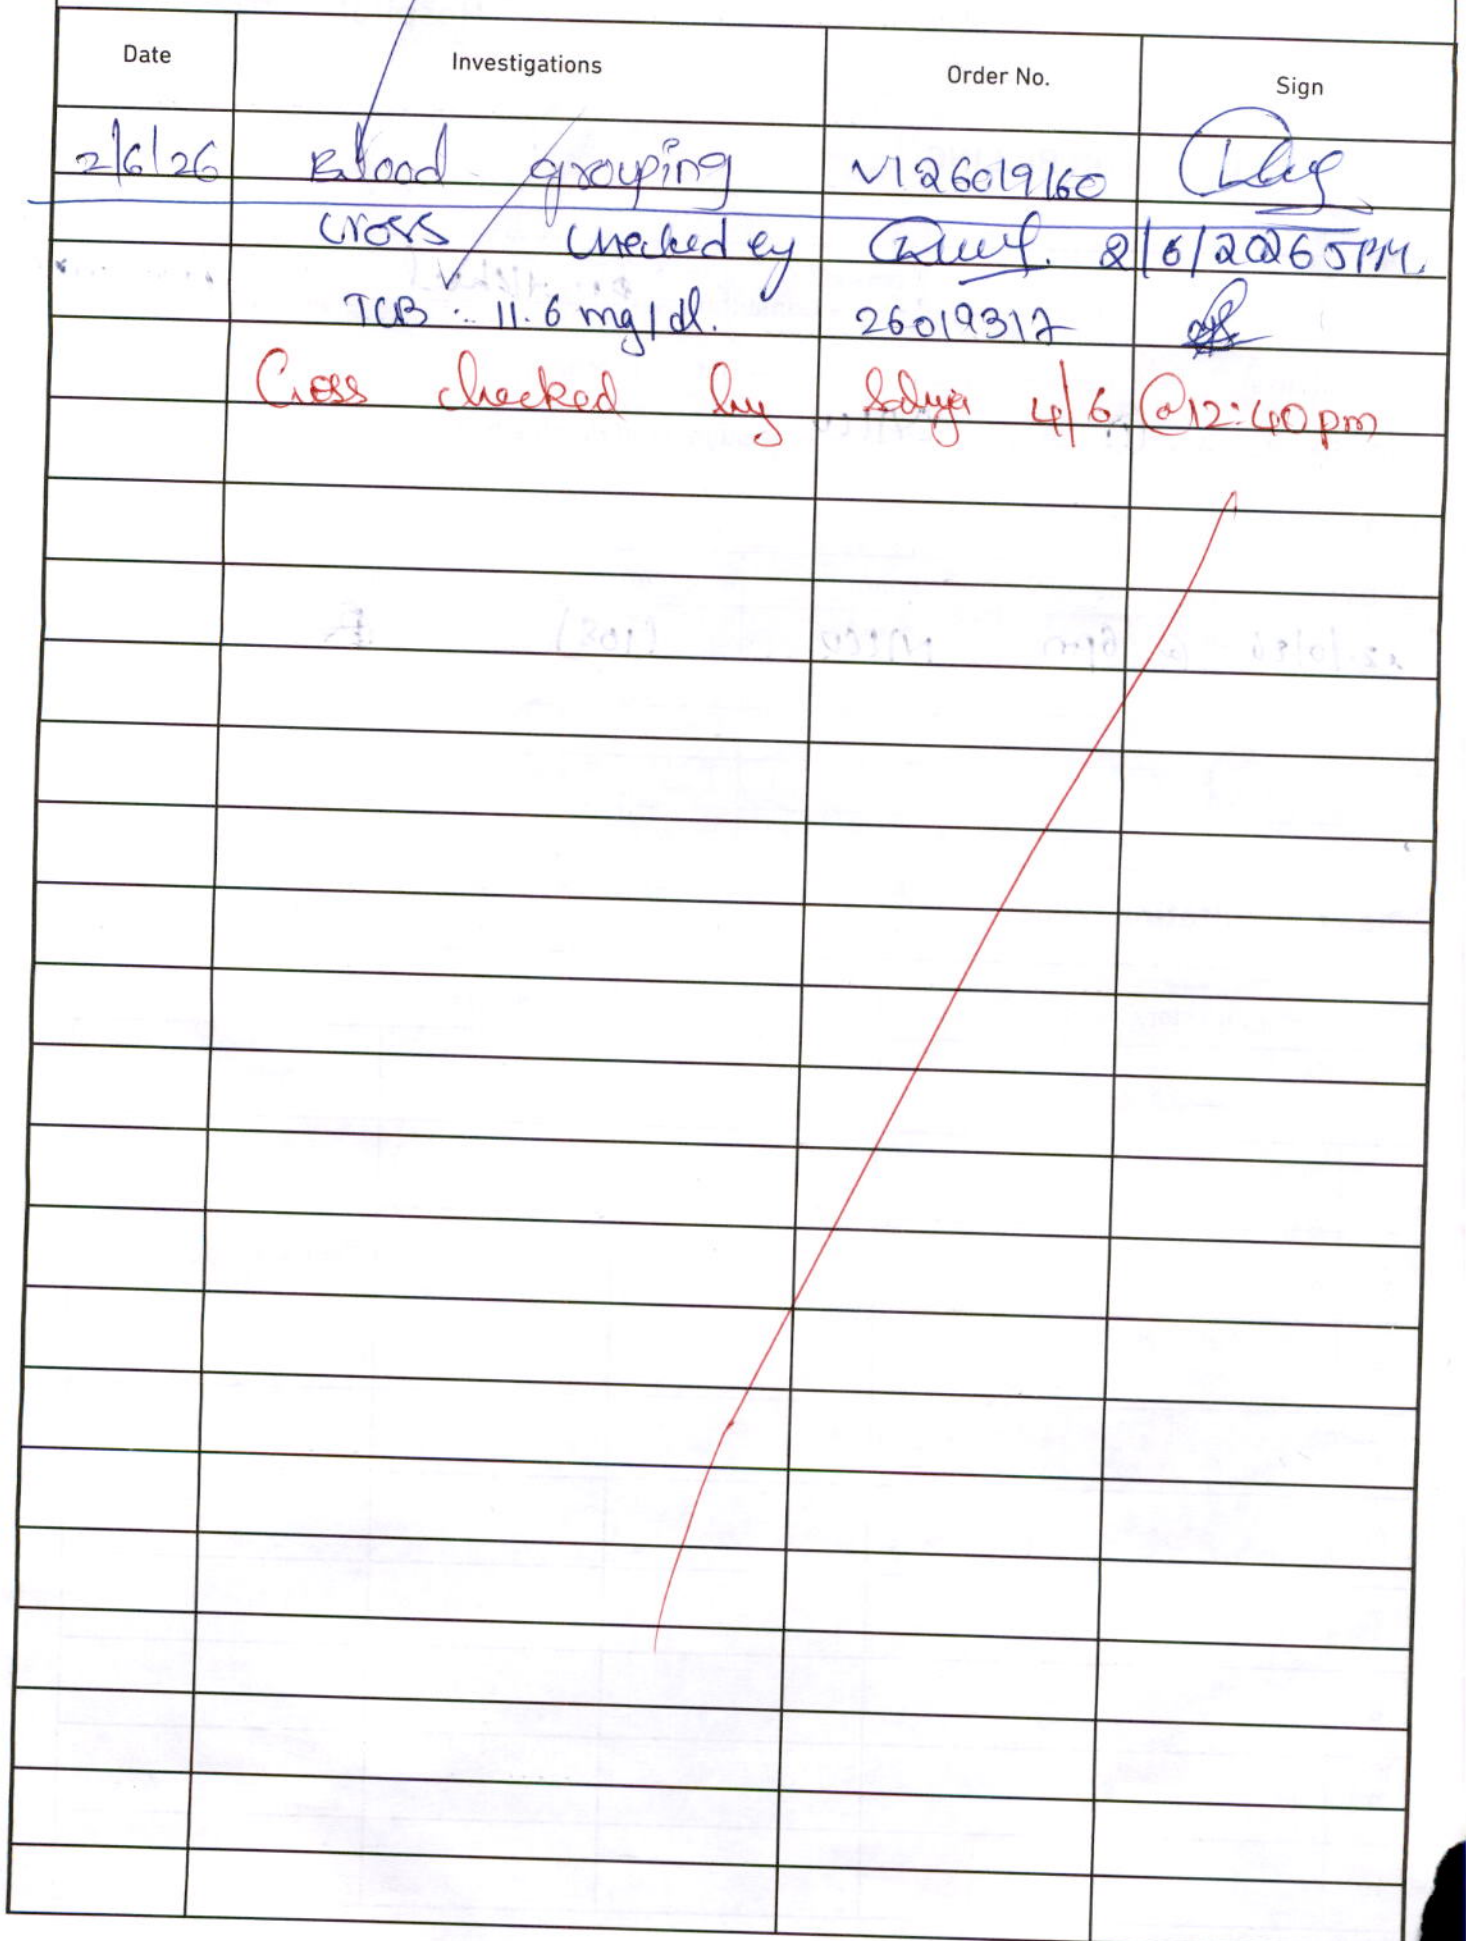 Date Investigations Order No. Sign
2/6/26 Blood grouping V126019160
cross checked by 2/6/2026 5PM
TCB :- 11.6 mg/dl. 26019317
Cross checked by 4/6 @12:40pm